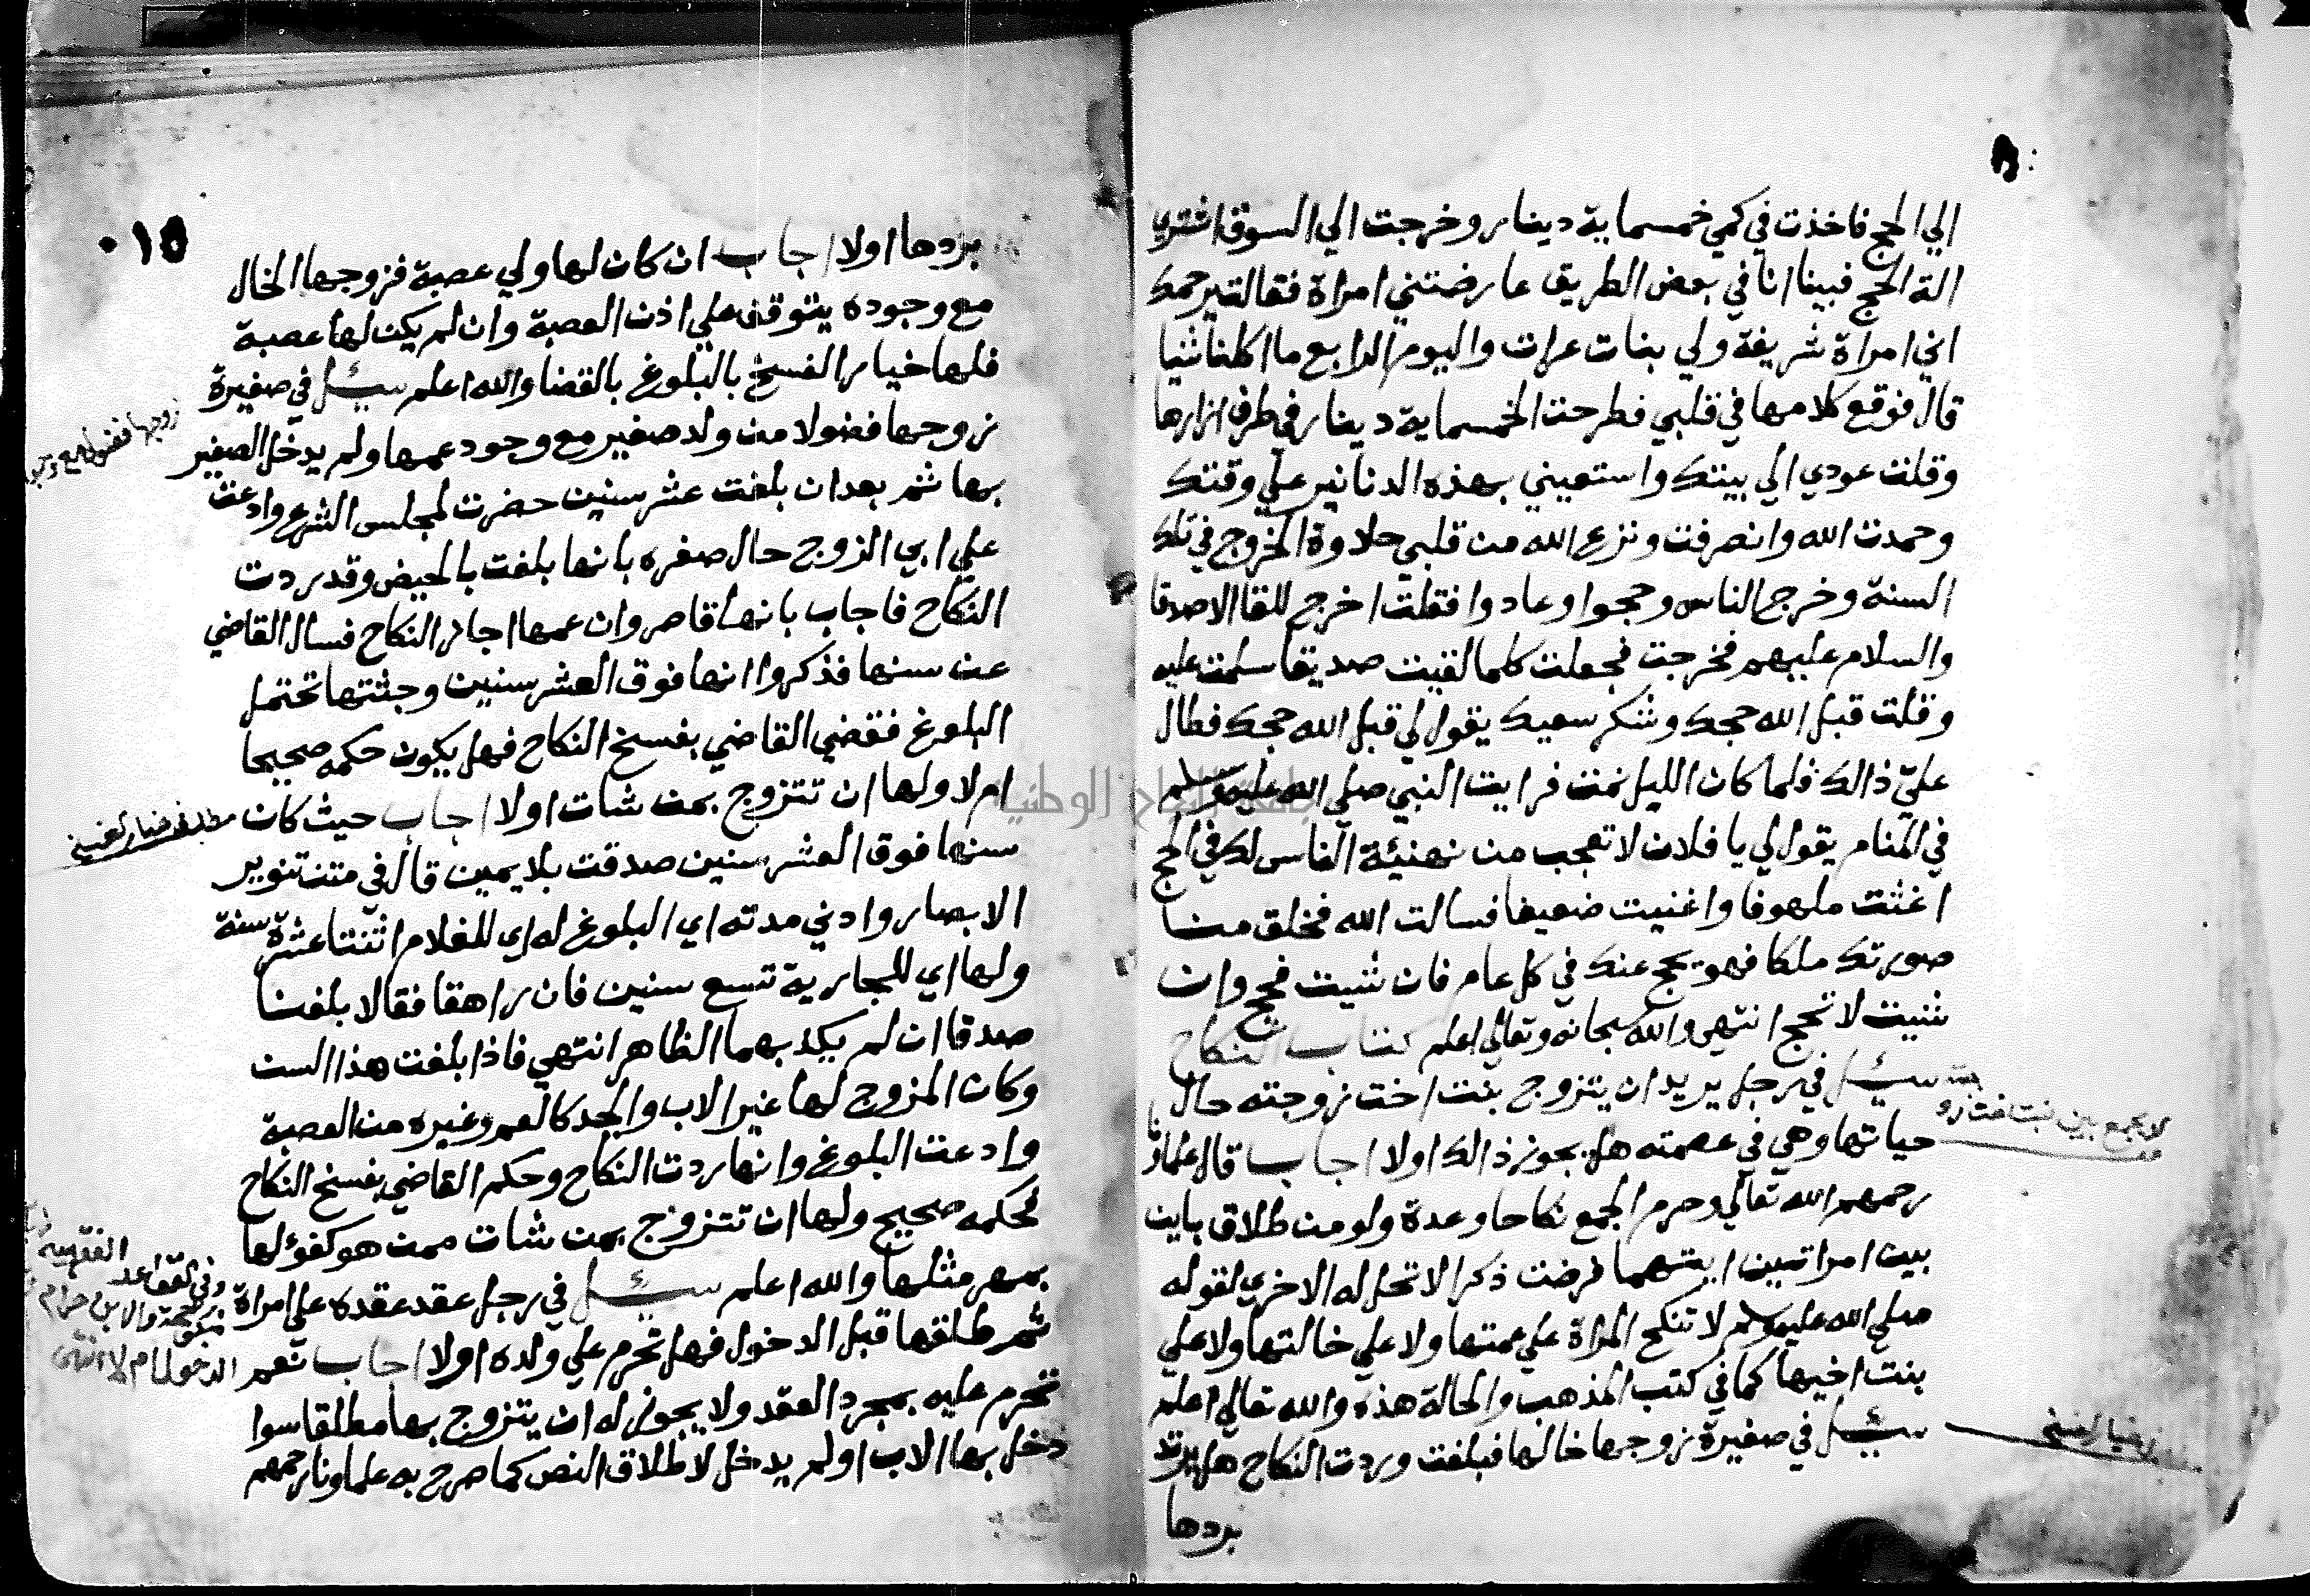 الي الحج فاخذت في كمي خمسماية دينار وخرجت الي السوق اشتري
الة الحج فبينا انا في بعض الطريق عارضتني امراة فقالت يرحمك
اني امراة شريفة ولي بنات عرات واليوم الرابع ما اكلنا شيا
قال فوقع كلامها في قلبي فطرحت الخمسماية دينار في طرف ازارها
وقلت عودي الي بيتك واستعيني بهذه الدنانير علي وقتك
وحمدت الله وانصرفت ونزع الله من قلبي حلاوة الخروج في تلك
السنة وخرج الناس وحجوا وعادوا فقلت اخرج للقا الاصدقا
والسلام عليهم فخرجت فجعلت كلما لقيت صديقا سلمت عليه
وقلت قبل الله حجك وشكر سعيك يقول لي قبل الله حجك فطال
عليّ ذالك فلما كان الليل نمت فرايت النبي صلي الله عليه وسلم
في المنام يقول لي يا فلان لا تعجب من تهنيئة الناس لك في الحج
اغثت ملهوفا واغنيت ضعيفا فسالت الله فخلق من
صورتك ملكا فهو يحج عنك في كل عام فان شيت فحج وان
شيت لا تحج انتهي والله سبحانه وتعالي اعلم كتاب النكاح
سئل في رجل يريد ان يتزوج بنت اخت زوجته حال
لا يجمع بين بنت اخت زوجته
حياتها وهي في عصمته هل يجوز ذالك اولا اجاب قال علماونا
رحمهم الله تعالي وحرم الجمع نكاحا وعدة ولو من طلاق باين
بين امراتين ايتهما فرضت ذكرا لا تحل له الاخري لقوله
صلي الله عليه وسلم لا تنكح المراة علي عمتها ولا علي خالتها ولا علي
بنت اخيها كما في كتب المذهب والحالة هذه والله تعالي اعلم
سئل في صغيرة زوجها خالها فبلغت وردت النكاح هل يرتد
خيار الفسخ
بردها
١٥
بردها اولا اجاب ان كان لها ولي عصبة فزوجها الخال
مع وجوده يتوقف علي اذن العصبة وان لم يكن لها عصبة
فلها خيار الفسخ بالبلوغ بالقضا والله اعلم سئل في صغيرة
زوجها فضولا من ولد صغير مع وجود عمها ولم يدخل الصغير
زوجها فضولا مع
بها ثم بعد ان بلغت عشر سنين حضرت لمجلس الشرع وادعت
علي ابي الزوج حال صغره بانها بلغت بالحيض وقد ردت
النكاح فاجاب بانها قاصر وان عمها اجاز النكاح فسال القاضي
عن سنها فذكروا انها فوق العشر سنين وجثتها تحتمل
البلوغ فقضي القاضي بفسخ النكاح فهل يكون حكمه صحيحا
ام لا ولها ان تتزوج بمن شات اولا اجاب حيث كان
خيار الفسخ
سنها فوق العشر سنين صدقت بلا يمين قال في متن تنوير
الابصار وادني مدته اي البلوغ له اي للغلام اثنتا عشرة سنة
ولها اي للجارية تسع سنين فان راهقا فقالا بلغنا
صدقا ان لم يكذبهما الظاهر انتهي فاذا بلغت هذا السن
وكان المزوج لها غير الاب والجد كالعم وغيره من العصبة
وادعت البلوغ وانها ردت النكاح وحكم القاضي بفسخ النكاح
فحكمه صحيح ولها ان تتزوج بمن شات ممن هو كفؤ لها
بمهر مثلها والله اعلم سئل في رجل عقد عقده علي امراة
ثم طلقها قبل الدخول فهل تحرم علي ولده اولا اجاب نعم
وفي القواعد الفقهية
تحرم عليه بمجرد العقد ولا يجوز له ان يتزوج بها مطلقا سوا
دخل بها الاب اولم يدخل لاطلاق النص كما صرح به علماونا رحمهم
جامعة النجاح الوطنية